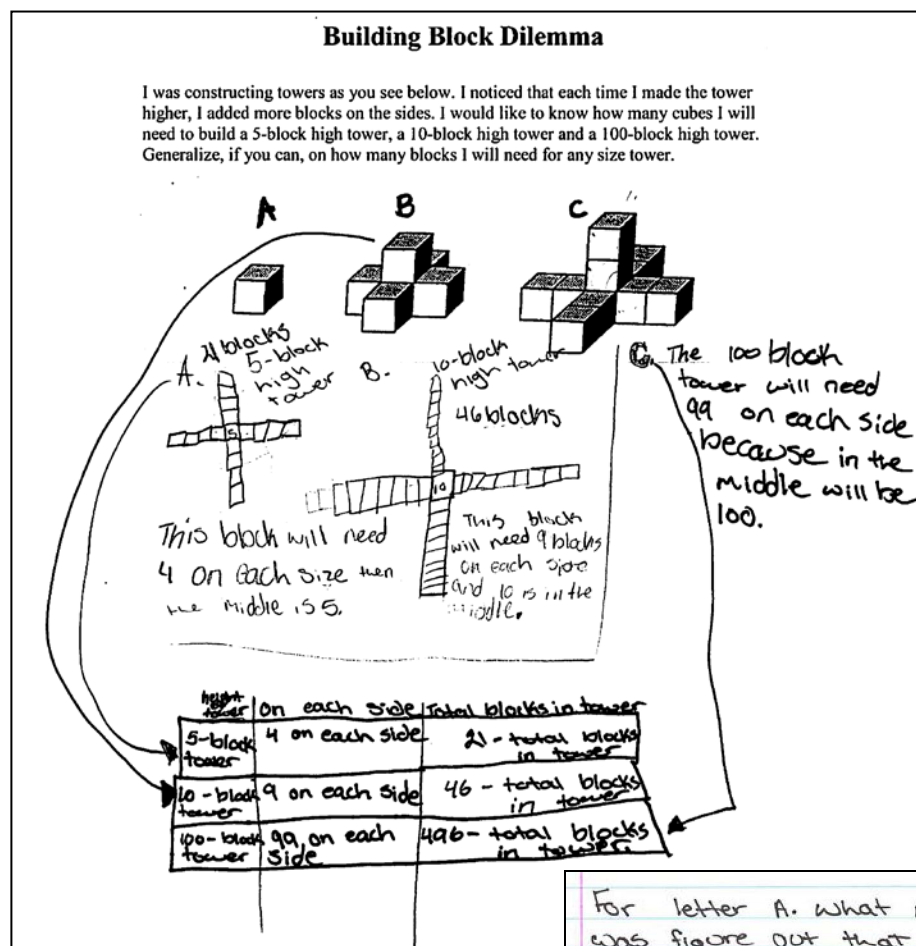 Building Block Dilemma
I was constructing towers as you see below. I noticed that each time I made the tower
higher, I added more blocks on the sides. I would like to know how many cubes I will
need to build a 5-block high tower, a 10-block high tower and a 100-block high tower.
Generalize, if you can, on how many blocks I will need for any size tower.
A
B
C
A.
21 blocks
5-block
high
tower
5
This block will need
4 on each size then
the middle is 5.
B.
10-block
high tower
46 blocks
10
This block
will need 9 blocks
on each side
and 10 is in the
middle.
C. The 100 block
tower will need
99 on each side
because in the
middle will be
100.
height of tower | on each side | Total blocks in tower
5-block tower | 4 on each side | 21 - total blocks in tower
10-block tower | 9 on each side | 46 - total blocks in tower
100-block tower | 99 on each side | 496 - total blocks in tower.
For letter A. what
was figure out that